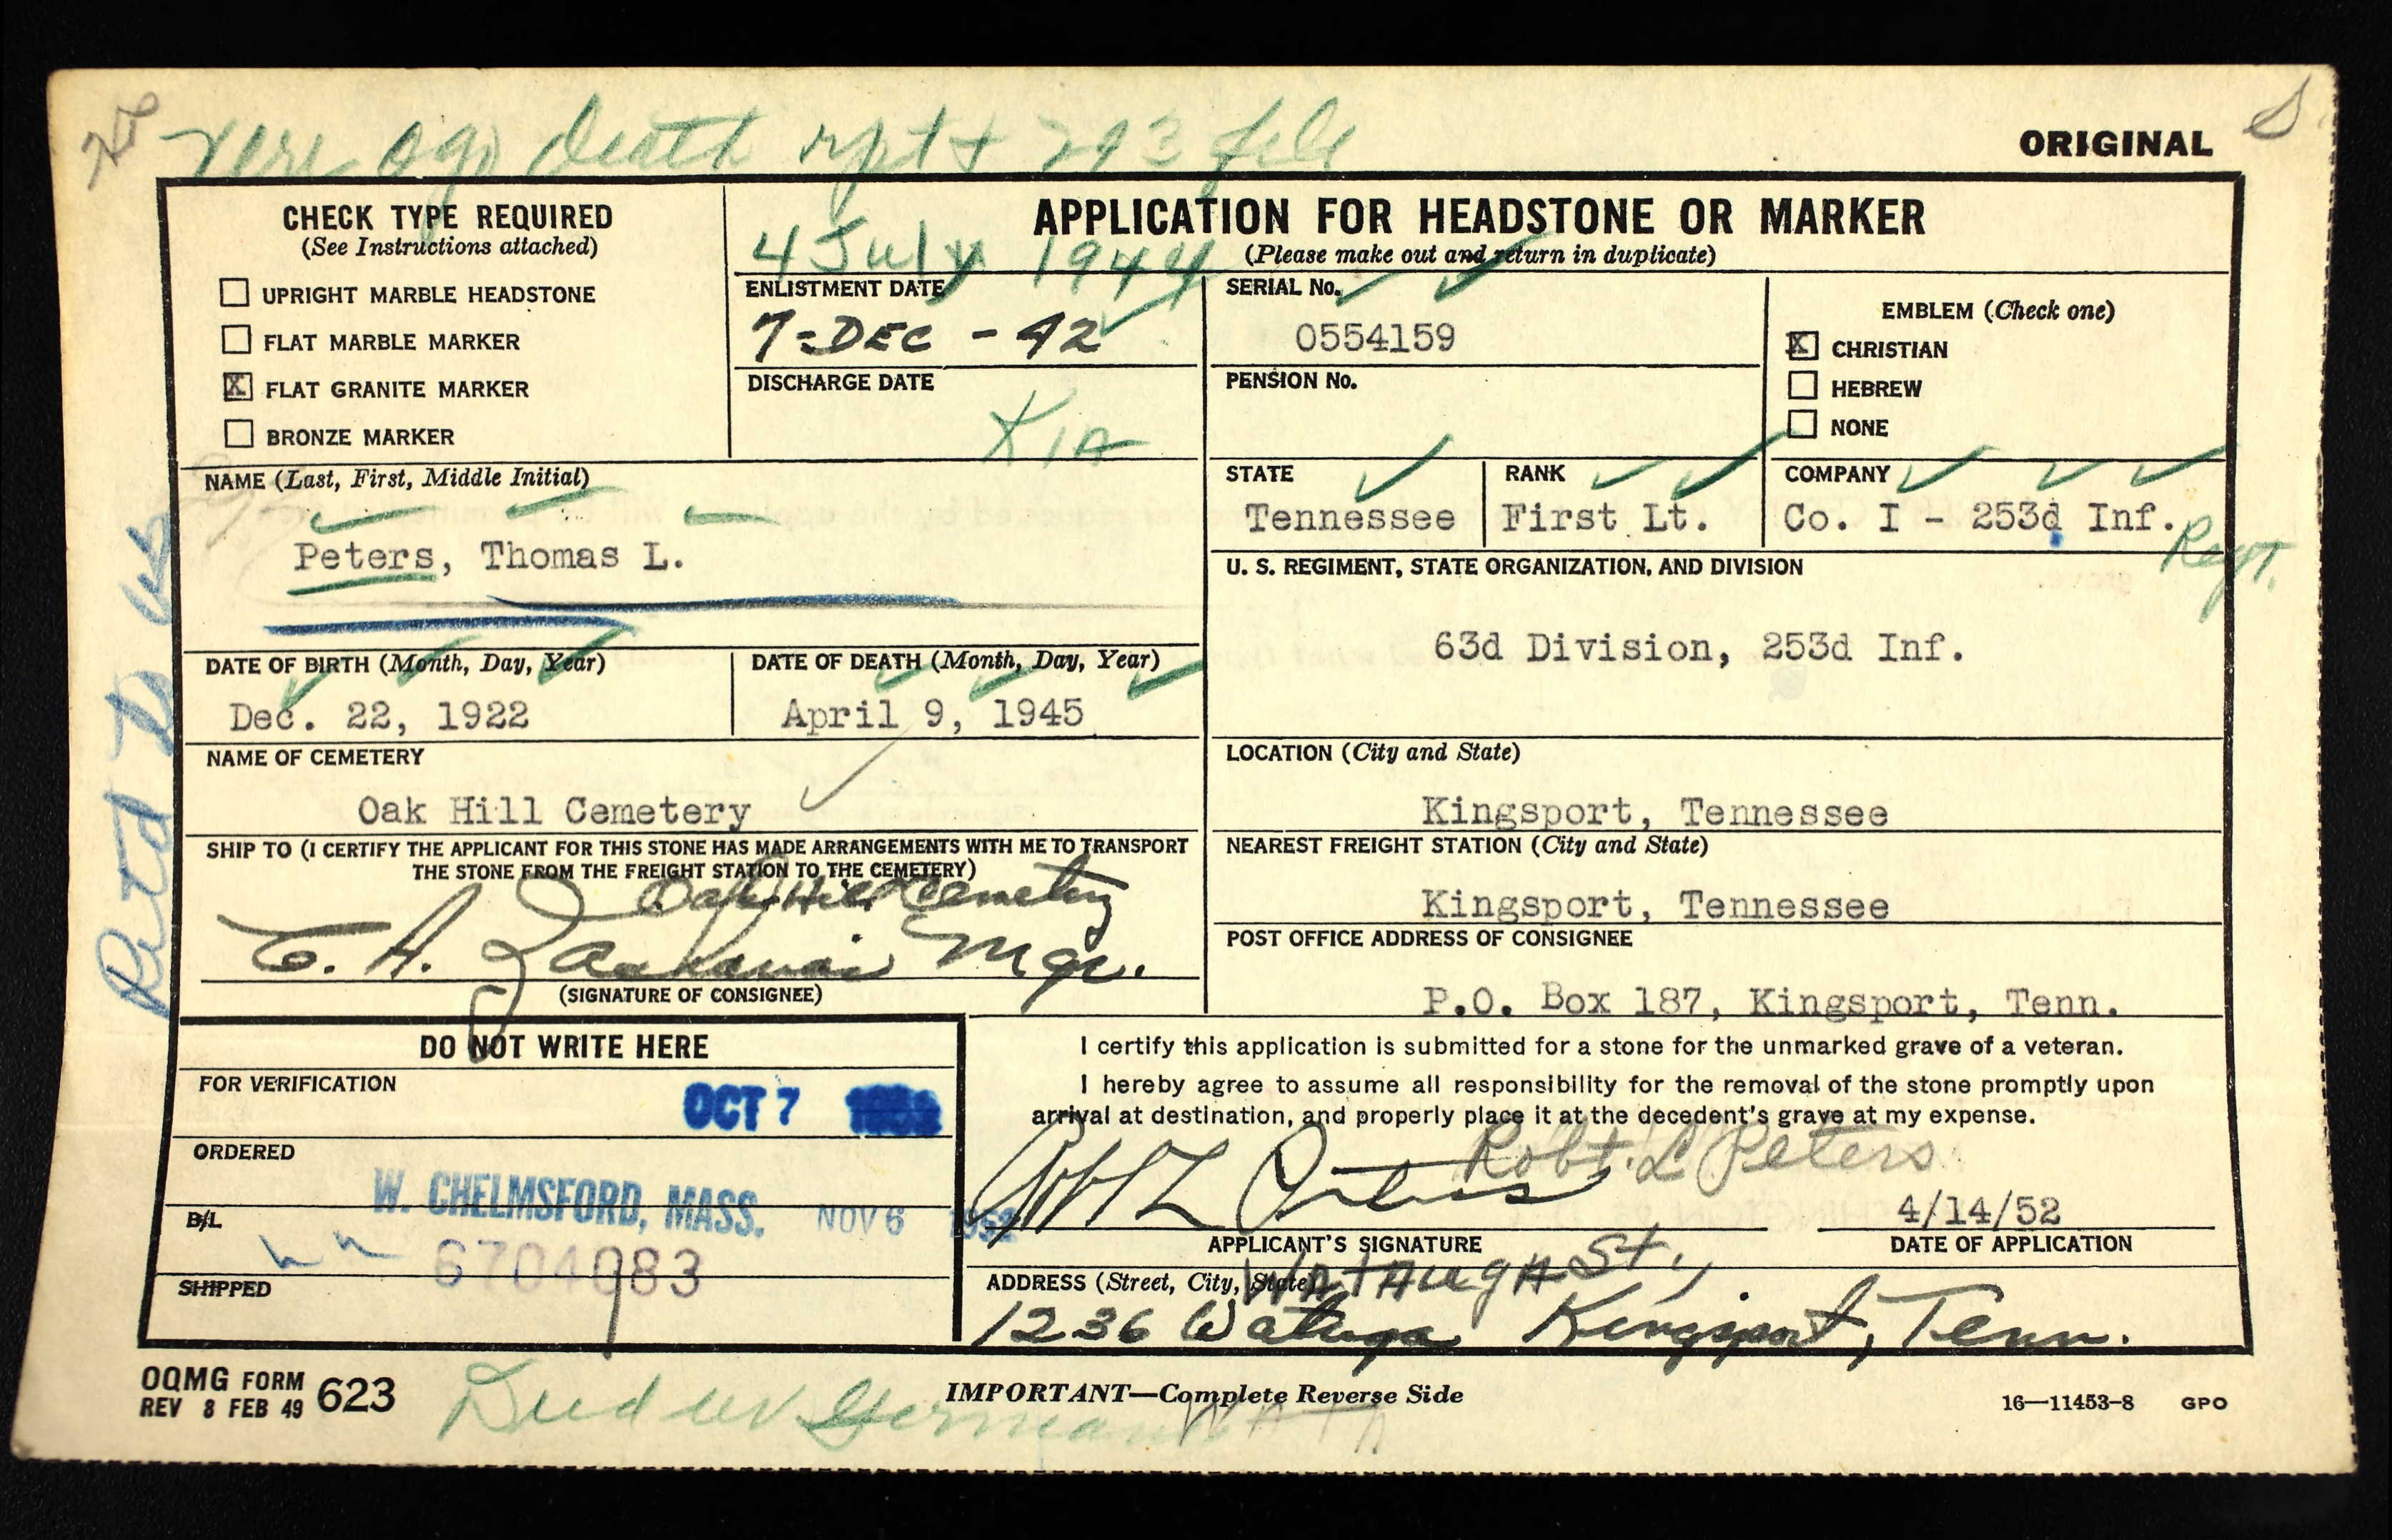 death rpt + 293 file
ORIGINAL
S
CHECK TYPE REQUIRED
(See Instructions attached)
UPRIGHT MARBLE HEADSTONE
FLAT MARBLE MARKER
X FLAT GRANITE MARKER
BRONZE MARKER
APPLICATION FOR HEADSTONE OR MARKER
(Please make out and return in duplicate)
4 July 1944
ENLISTMENT DATE
7-DEC-42
DISCHARGE DATE
KIA
SERIAL No.
0554159
PENSION No.
EMBLEM (Check one)
X CHRISTIAN
HEBREW
NONE
NAME (Last, First, Middle Initial)
Peters, Thomas L.
STATE
Tennessee
RANK
First Lt.
COMPANY
Co. I - 253d Inf.
Regt.
U. S. REGIMENT, STATE ORGANIZATION, AND DIVISION
63d Division, 253d Inf.
DATE OF BIRTH (Month, Day, Year)
Dec. 22, 1922
DATE OF DEATH (Month, Day, Year)
April 9, 1945
NAME OF CEMETERY
Oak Hill Cemetery
LOCATION (City and State)
Kingsport, Tennessee
SHIP TO (I CERTIFY THE APPLICANT FOR THIS STONE HAS MADE ARRANGEMENTS WITH ME TO TRANSPORT
THE STONE FROM THE FREIGHT STATION TO THE CEMETERY)
Oak Hill Cemetery
Mgr.
(SIGNATURE OF CONSIGNEE)
NEAREST FREIGHT STATION (City and State)
Kingsport, Tennessee
POST OFFICE ADDRESS OF CONSIGNEE
P.O. Box 187, Kingsport, Tenn.
DO NOT WRITE HERE
FOR VERIFICATION
OCT 7 1952
ORDERED
W. CHELMSFORD, MASS. NOV 6 1952
B/L
6704083
SHIPPED
I certify this application is submitted for a stone for the unmarked grave of a veteran.
I hereby agree to assume all responsibility for the removal of the stone promptly upon
arrival at destination, and properly place it at the decedent's grave at my expense.
Robt L Peters
Robt. L Peters
4/14/52
APPLICANT'S SIGNATURE
DATE OF APPLICATION
ADDRESS (Street, City, State)
WATAUGA St.,
1236 Watuga Kingsport, Tenn.
OQMG FORM 623
REV 8 FEB 49
Died in Germany
IMPORTANT—Complete Reverse Side
16—11453-8 GPO